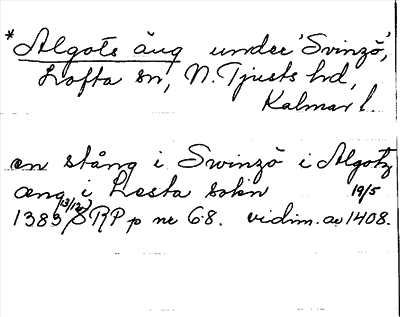 *Algots äng under 'Svinzö',
Lofta sn, N. Tjusts hd,
Kalmar l.
en stång i Swinzö i Algotz
æng i Lofta sokn 19/5
1383 (13/12) SRP p nr 68. vidim. av 1408.